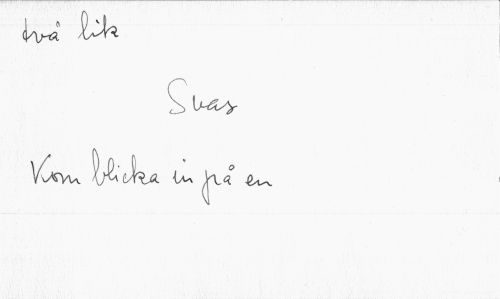 två lik
Svar
Kom blicka in på en